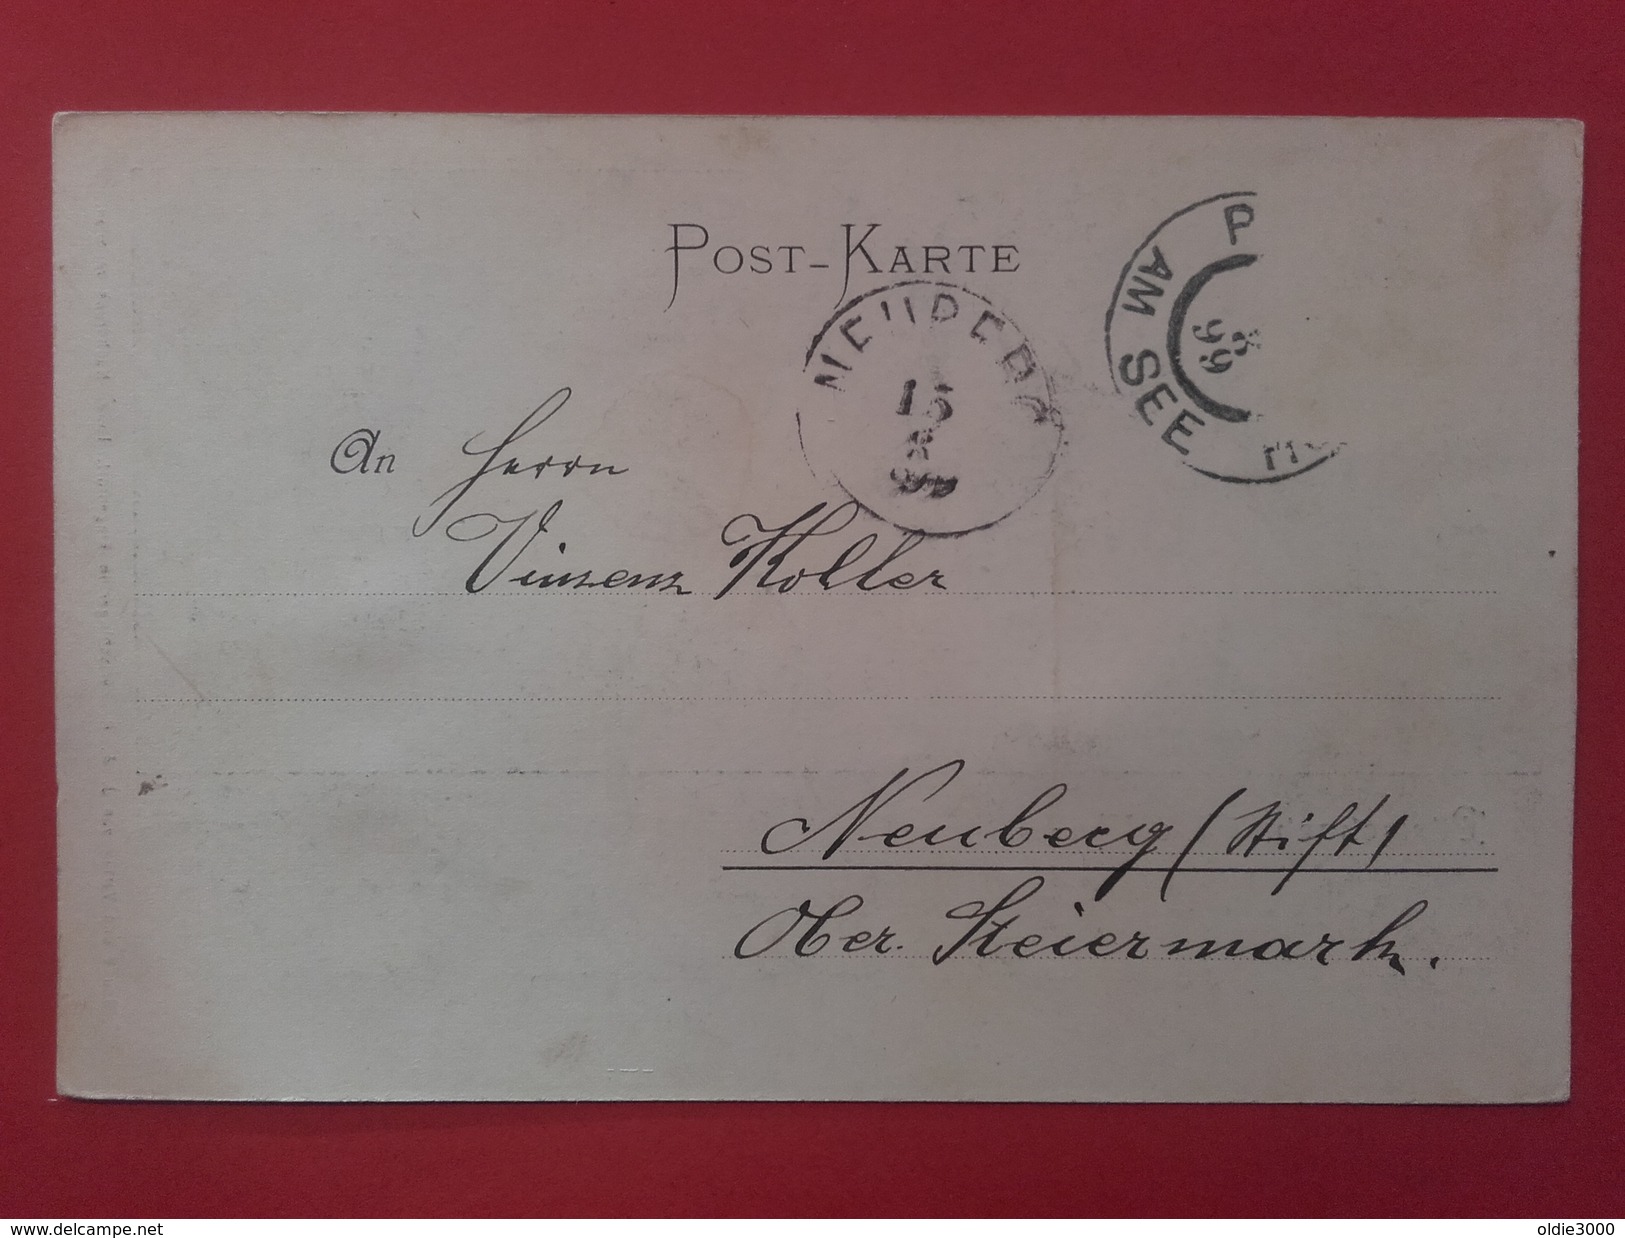 POST-KARTE
P
AM SEE
8
99
NEUBERG
15
8
An Herrn
Vinzenz Koller
Neuberg (Stift)
Ober. Steiermark.
www.delcampe.net
oldie3000